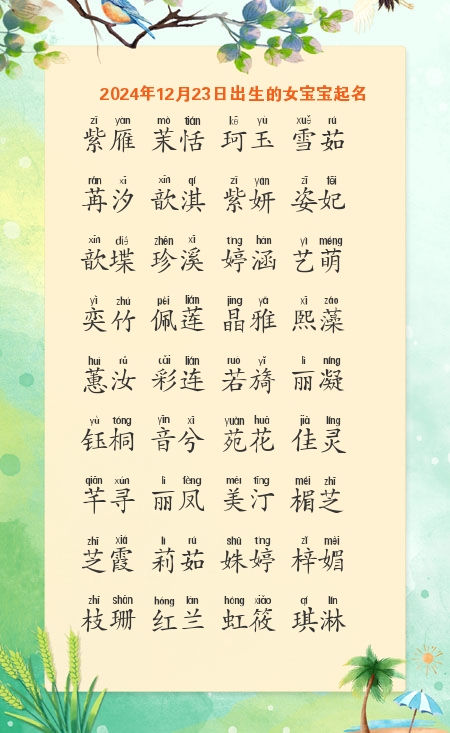 2024年12月23日出生的女宝宝起名
zǐ yàn mò tián kē yù xuě rú
紫雁 茉恬 珂玉 雪茹
rǎn xī xīn qí zǐ yán zī fēi
苒汐 歆淇 紫妍 姿妃
xīn dié zhēn xī tíng hán yì méng
歆堞 珍溪 婷涵 艺萌
yì zhú pèi lián jīng yǎ xī zǎo
奕竹 佩莲 晶雅 熙藻
huì rǔ cǎi lián ruò yǐ lì níng
蕙汝 彩连 若旖 丽凝
yù tóng yīn xī yuàn huā jiā líng
钰桐 音兮 苑花 佳灵
qiān xún lì fèng měi tīng méi zhī
芊寻 丽凤 美汀 楣芝
zhī xiá lì rú shū tíng zǐ mèi
芝霞 莉茹 姝婷 梓媚
zhī shān hóng lán hóng xiǎo qí lín
枝珊 红兰 虹筱 琪淋